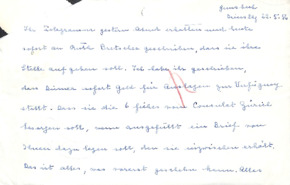 Ihr Telegramm gestern Abend erhalten und heute
sofort an geschrieben, dass sie ihre
Stelle aufgeben soll. Ich habe ihr geschrieben,
das sofort Geld für Auslagen zur Verfügung
stellt. Dass sie die 6 vom Consulat Zürich
besorgen soll, ausgefüllt ein Brief von
Ihnen dazu legen soll, den sie inzwischen erhält.
Das ist alles, was vorerst geschehen kann. Alles